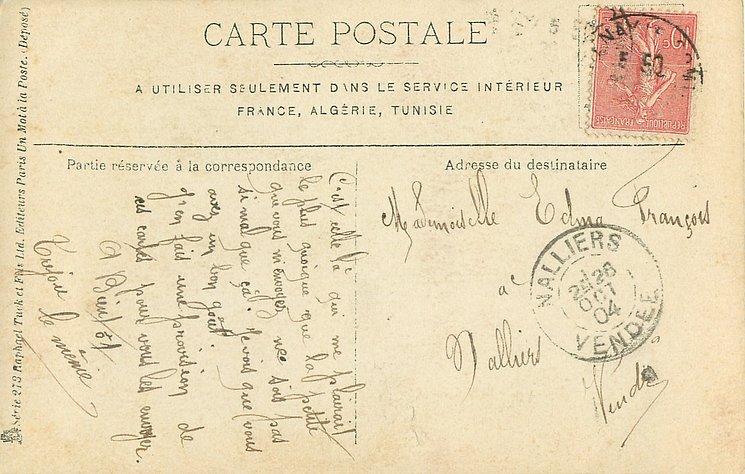 CARTE POSTALE
A UTILISER SEULEMENT DANS LE SERVICE INTÉRIEUR
FRANCE, ALGÉRIE, TUNISIE
Partie réservée à la correspondance
Adresse du destinataire
C'est celle là qui me plairait
le plus quoique que la petite
que vous m'envoyez ne soit pas
si mal que ça. Je vois que vous
avez un bon goût
j'en fait une provision de
ces cartes pour vous les envoyer.
A Bientôt
Toujours le même
Mademoiselle Edma François
à
Nalliers
Vendée
NALLIERS
26
OCT
04
VENDEE
RÉPUBLIQUE FRANÇAISE
Série 273 Raphael Tuck et Fils Ltd. Editeurs Paris Un Mot à la Poste. (Déposé)